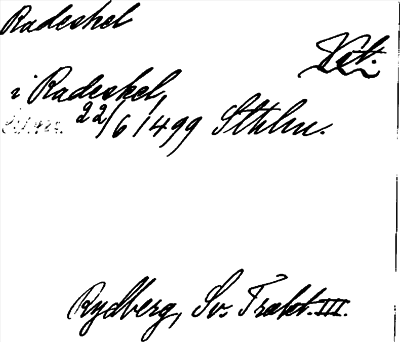 Radeskel
i Radeskel,
22/6 1499 Sthlm.
Rydberg, Sv. Trakt. III.